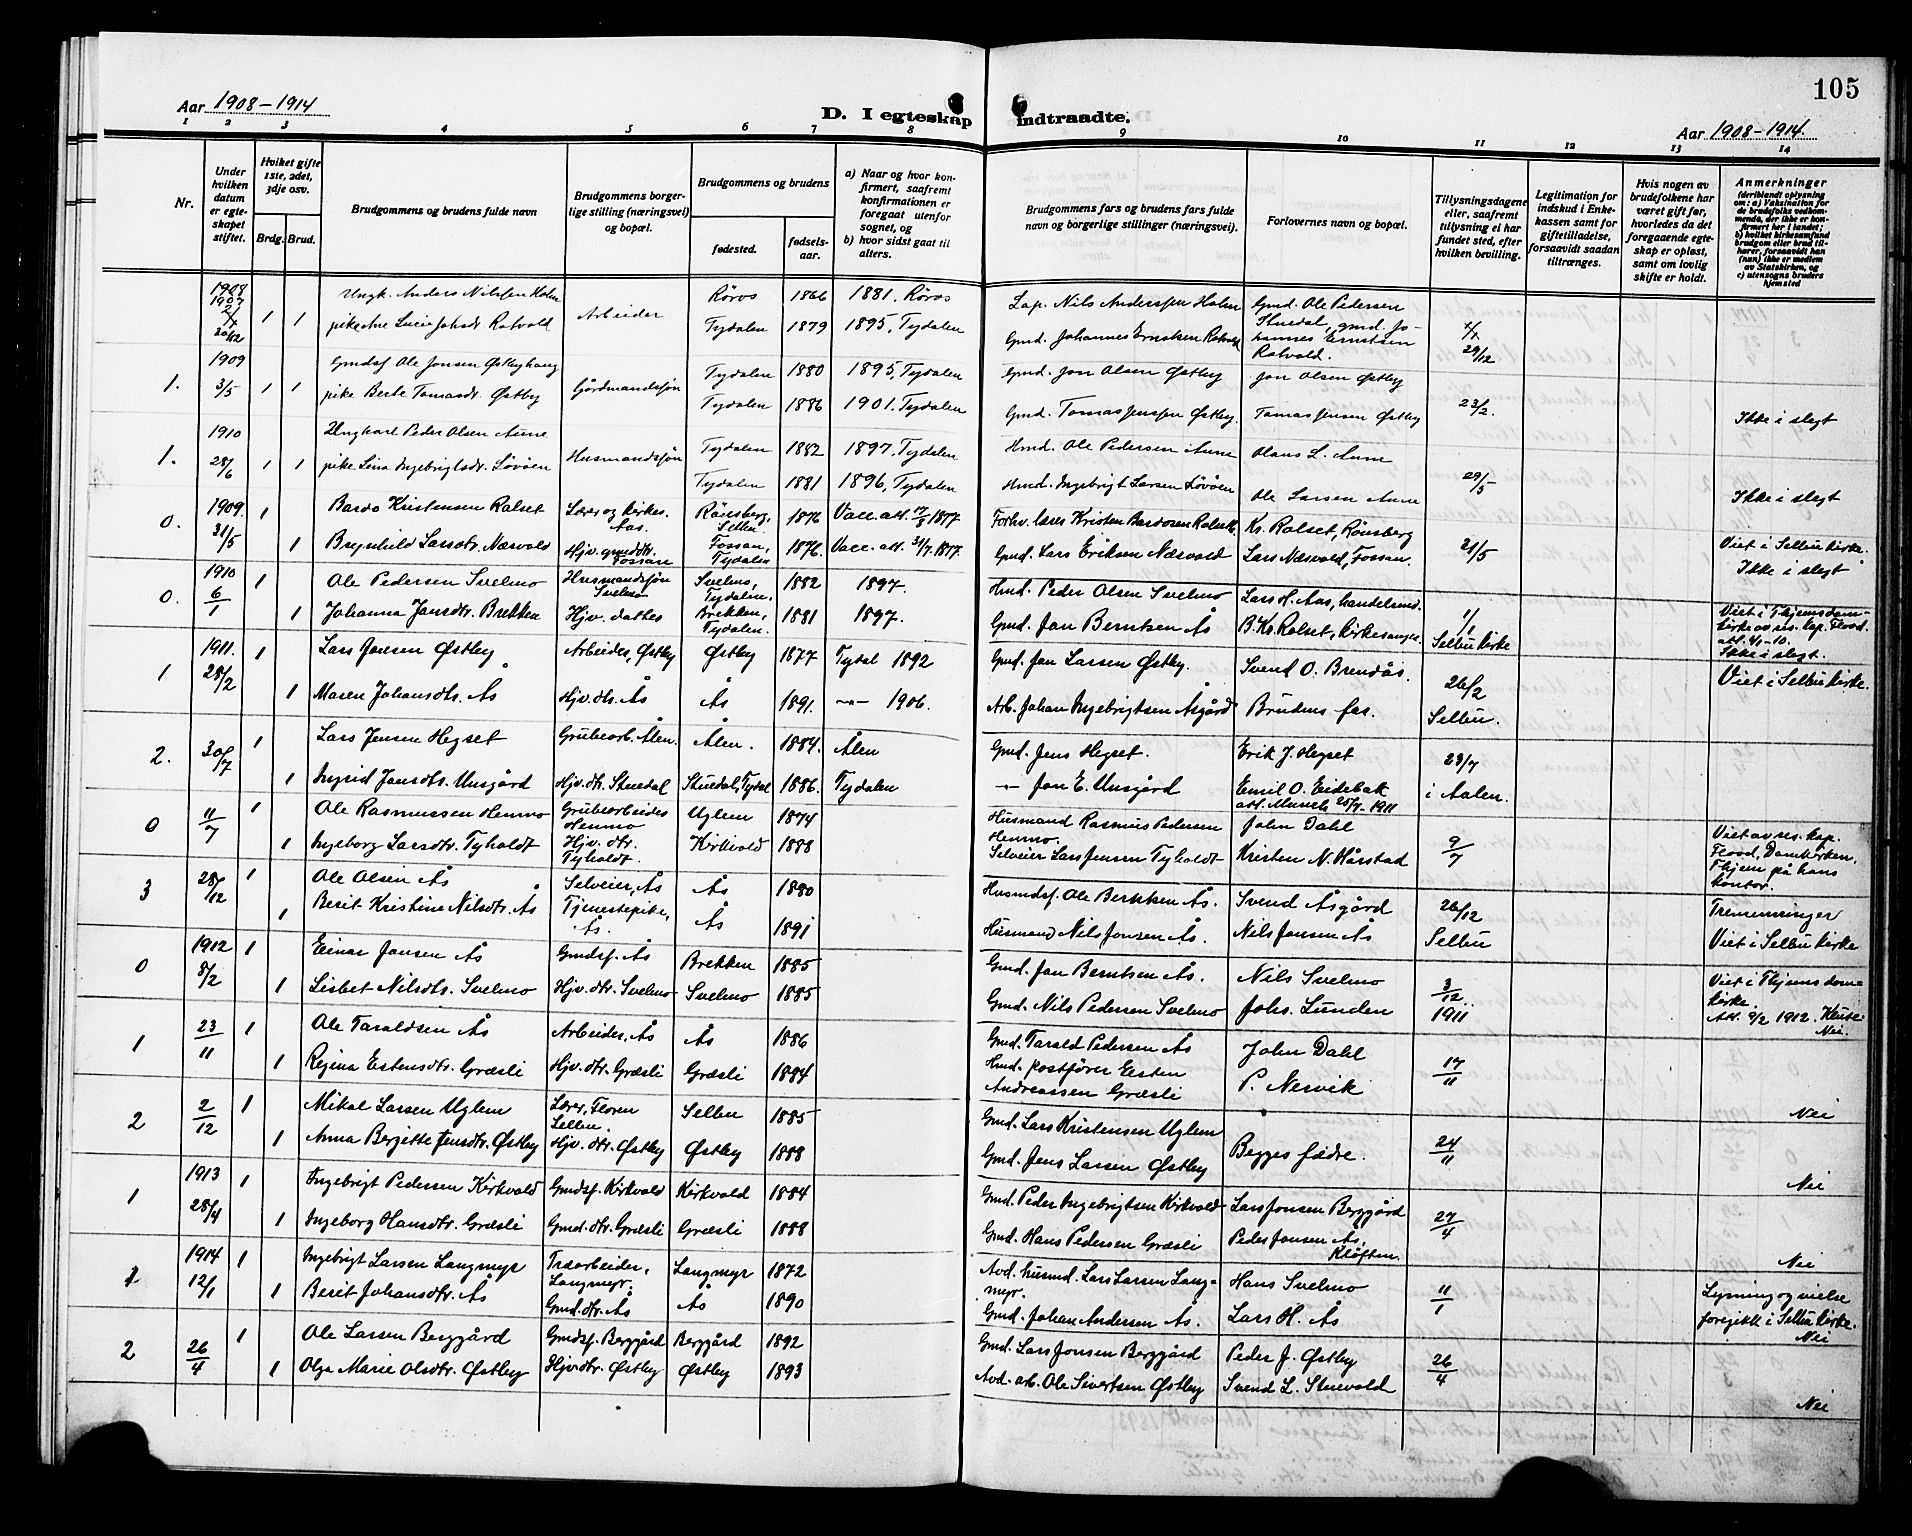 105
Aar 1908-1914
D. I egteskap indtraadte.
Aar 1908-1914.
1 2 3 4 5 6 7 8 9 10 11 12 13 14
Nr.
Under hvilken datum er egteskapet stiftet.
Hvilket gifte 1ste, 2det, 3dje osv.
Brdg. Brud.
Brudgommens og brudens fulde navn
Brudgommens borgerlige stilling (næringsvei) og bopæl.
Brudgommens og brudens
fødested. fødselsaar.
a) Naar og hvor konfirmert, saafremt konfirmationen er foregaat utenfor sognet, og
b) hvor sidst gaat til alters.
Brudgommens fars og brudens fars fulde navn og borgerlige stillinger (næringsvei).
Forlovernes navn og bopæl.
Tillysningsdagene eller, saafremt tillysning ei har fundet sted, efter hvilken bevilling.
Legitimation for indskud i Enkekassen samt for giftetilladelse, forsaavidt saadan tiltrænges.
Hvis nogen av brudefolkene har været gift før, hvorledes da det foregaaende egteskap er opløst, samt om lovlig skifte er holdt.
Anmerkninger
(deriblandt oplysning om: a) Vaksination for de brudefolks vedkommende, der ikke er konfirmert her i landet; b) hvilket kirkesamfund brudgom eller brud tilhører, forsaavidt han (hun) ikke er medlem av Statskirken, og c) utensogns bruders hjemsted
1908 1 1 Ungk. Anders Nilssen Holm Arbeider Røros 1866 1881, Røros Gmd. Ole Pedersen
pike Ane Lucie Johsdr. Rotvold Tydalen 1879 1895, Tydalen Gmd. Johannes Erntsen Rotvold Stuedal, gmd. Johannes Erntsen Rotvold. 29/12
1909 Gmdsf Ole Jonsen Østbyhaug Tydalen 1880 1895, Tydalen Gmd. Jon Olsen Østby Jon Olsen Østby
1. 3/5 1 1 pike Berte Tomasdr. Østby Gårdmandssøn Tydalen 1886 1901. Tydalen Gmd. Tomas Jensen Østby. Tomas Jensen Østby 23/2. Ikke i slegt
1910 Ungkarl Peder Olsen Aune Tydalen 1882 1897, Tydalen Hmd. Ole Pedersen Aune Olaus L. Aune
1. 28/6 1 1 pike Lina Ingebrigtsdr. Løvøen Husmandssøn Tydalen 1881 1896, Tydalen Hmd. Ingebrigt Larsen Løvøen Ole Larsen Aune 29/5 Ikke i slegt
1909. 1 Bardo Kristensen Rolset Lærer og kirkes. Aas. Rönsberg, Selbu 1876 Vacc. att. 17/8 1877 Forhv. lærer Kristen Bardosen Rolseth Kr. Rolset, Rønsberg
0. 31/5 1 Brynhild Larsdtr. Næsvold Hjv. gmddtr. Fossan Fossan, Tydalen 1876. Vacc. att. 31/7 1877. Gmd. Lars Eriksen Næsvold Lars Næsvold, Fossan. 21/5 Viet i Selbu kirke. Ikke i slegt
1910 1 Ole Pedersen Svelmo Husmandssøn Svelmo Svelmo, Tydalen, 1882 1897. Hmd. Peder Olsen Svelmo Lars H. Aas, handelsmd.
0. 6/1 1 Johanna Jonsdtr. Brekken Hjv. datter Brekken, Tydalen. 1881 1897. Gmd. Jon Berntsen Ås B. Kr. Rolset, kirkesanger 1/1 Selbu kirke Viet i Thjems domkirke av res. kap. Flood. att. 6/1-10. Ikke i slegt.
1911. 1 Lars Jonsen Østby Arbeider, Østby Østby 1877 Tydal 1892 Gmd. Jon Larsen Østby. Svend O. Brendås.
1 28/2 1 Maren Johansdtr. Ås Hjv. dtr. Ås Ås 1891. -"- 1906. Arb. Johan Ingebrigtsen Åsgård Brudens far. 26/2 Selbu. Viet i Selbu kirke.
2. 30/7 1 Lars Jensen Hegset Grubearb. Ålen. Ålen. 1884. Ålen Gmd. Jens Hegset. Erik J. Hegset 23/7
1 Ingrid Jonsdtr. Unsgård Hjv. dtr. Stuedal Stuedal, Tydal 1886. Tydalen -"- Jon E. Unsgård Emil O. Eidebak att. Munch 25/7-1911 i Aalen.
0 11/7 1 Ole Rasmussen Henmo Grubearbeider Henmo Uglem 1874 Husmand Rasmus Pedersen Henmo. John Dahl
1 Ingeborg Larsdtr. Tyholdt Hjv. dtr. Tyholdt. Kirkvold 1888 Selveier Lars Jensen Tyholdt Kristen N. Hårstad 9/7 Viet av res. kap. Flood, Domkirken, Thjem på hans kontor.
3 28/12 1 Ole Olsen Ås Selveier, Ås Ås 1880 Husmdsf. Ole Berntsen Ås. Svend Åsgård 26/12 Tremenninger
1 Berit Kristine Nilsdtr. Ås Tjenestepike, Ås. Ås 1891 Husmand Nils Jonsen Ås. Nils Jonsen Ås Selbu Viet i Selbu kirke
0 1912 1 Einar Jonsen Ås Gmdsf. Ås Brekken 1885 Gmd. Jon Berntsen Ås. Nils Svelmo
8/2 1 Lisbet Nilsdtr. Svelmo Hjv. dtr. Svelmo Svelmo 1885 Gmd. Nils Pedersen Svelmo Johs. Lunden 3/12 1911 Viet i Thjems domkirke. Att. 9/2 1912. Nei.
1 23/11 1 Ole Taraldsen Ås Arbeider, Ås Ås 1886 Gmd. Tarald Pedersen Ås John Dahl
1 Regina Estensdtr. Græsli Hjv. dtr. Græsli Græsli 1884 Hmd. postfører Eesten Andreassen Græsli P. Nervik 17/11 Nei
2 2/12 1 Mikal Larsen Uglem Lærer, Floren Selbu. Selbu 1885 Gmd. Lars Kristensen Uglem
1 Anna Bergitte Jensdtr. Østby Hjv. dtr. Østby Østby 1888 Gmd. Jens Larsen Østby Begges fædre. 24/11 Nei
1 1913 1 Ingebrigt Pedersen Kirkvold Gmdsf. Kirkvold Kirkvold 1884 Gmd. Peder Ingebrigtsen Kirkvold Lars Jonsen Berggård
28/4 1 Ingeborg Hansdtr. Græsli Gmd. dtr. Græsli Græsli 1888 Gmd. Hans Pedersen Græsli Peder Jonsen Ås, Kløften. 27/4 Nei
1 1914 1 Ingebrigt Larsen Langmyr Træarbeider, Langmyr. Langmyr 1872 Avd. husmd. Lars Larsen Langmyr. Hans Svelmo
12/1 1 Berit Johansdtr. Ås Gmd. dtr. Ås Ås 1890 Gmd. Johan Andersen Ås. Lars H. Ås 11/1 Lysning og vielse foregikk i Selbu kirke. Nei
2 26/4 1 Ole Larsen Berggård Gmdsf. Berggård Berggård 1892 Gmd. Lars Jonsen Berggård Peder J. Østby 26/4
1 Olga Marie Olsdtr. Østby Hjv. dtr. Østby Østby 1893 Avd. arb. Ole Sivertsen Østby Svend L. Stuevold Nei